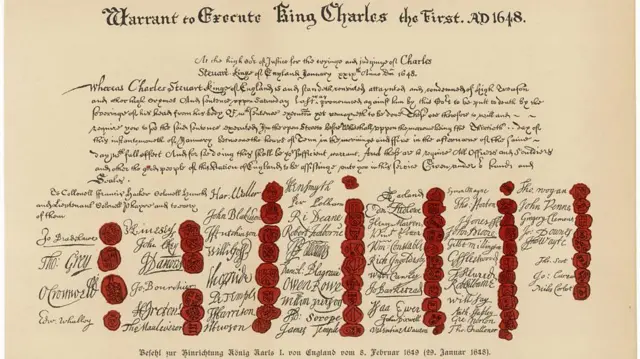 Warrant to Execute King Charles the First. AD 1648.
At the high Court of Justice for the tryinge and judginge of Charles
Steuart Kinge of England January xxixth Anno Dni 1648.
Whereas Charles Steuart Kinge of England is and standeth convicted attaynted and condemned of high Treason
and other high Crymes And sentence uppon Saturday last was pronounced against him by this Court to be put to death by the
severinge of his head from his body Of wch sentence execucon yet remayneth to be done These are therefore to will and
require you to see the said sentence executed In the open Streete before Whitehall uppon the morrowe being the Thirtieth day of
this instante moneth of January betweene the houres of Tenn in the morninge and Five in the afternoone of the same
day wth full effect And for so doing this shall be your sufficient warrant And these are to require All Officers and Souldiers
and other the good people of this Nation of England to be assistinge unto you in this service Given under our hands and
Seales
To Collonell Francis Hacker Colonell Huncks
and Lieutenant Colonell Phayre and to every
of them
Jo Bradshawe
Tho. Grey
O Cromwell
Edw. Whalley
John Okey
J Danvers
Jo Bourchier
H Ireton
Tho Mauleverer
Har. Waller
John Blakiston
J Hutchinson
Willi Goff
T Harrison
J Hewson
Hen Smyth
Per Pelham
Ri Deane
Robert Tichborne
Owen Rowe
Ad. Scrope
James Temple
Hen Marten
Wm Constable
Rich Ingoldsby
Will Cawley
Jo Barkstead
Isaa Ewer
Valentine Wauton
Symon Mayne
Tho Horton
J Jones
Gilbt Millington
G Fleetwood
J Alured
Robt Lilburne
Will Say
Anth Stapley
Gre Norton
Tho Challoner
Tho Wogan
John Venn
Gregory Clement
Jo Downes
Tho Wayte
Tho Scot
Jo Carew
Miles Corbet
Befehl zur Hinrichtung König Karls I. von England vom 8. Februar 1649 (29. Januar 1648).